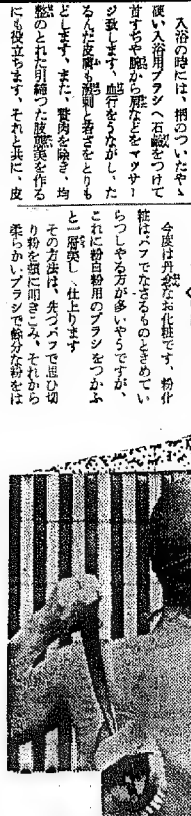 入浴の時には、柄のついたやゝ
硬い入浴用ブラシへ石鹸をつけて
首すぢや腕から肩などをマッサー
ジ致します、血行をうながし、た
るんだ皮膚も溌剌と若さをとりも
どします、また、贅肉を除き、均
整のとれた引締つた肢態美を作る
にも役立ちます、それと共に、皮
今度は丹念なお化粧です、粉化
粧はパフでなさるものときめてい
らつしやる方が多いやうですが、
これに粉白粉用のブラシをつかふ
と一層美しく仕上ります
その方法は、先づパフで思ひ切
り粉を顔に叩きこみ、それから
柔らかいブラシで餘分な粉をは